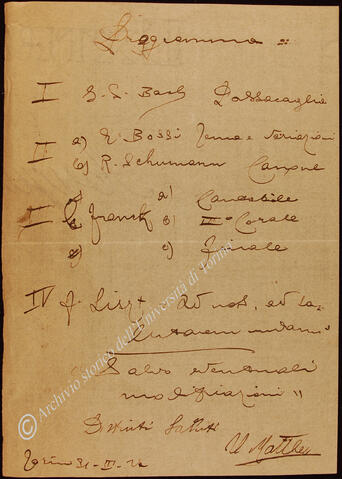 Programma =
I J. S. Bach Passacaglia
II a) E. Bossi Tema e variazioni
b) R. Schumann Canone
III C. Franck a) Cantabile
b) III° Corale
c) Finale
IV F. Liszt - Ad nos, ad sa-
lutarem undam"
Salvo eventuali
modificazioni "
Distinti saluti
U Matthey
Torino 31-III-
© Archivio storico dell'Università di Torino